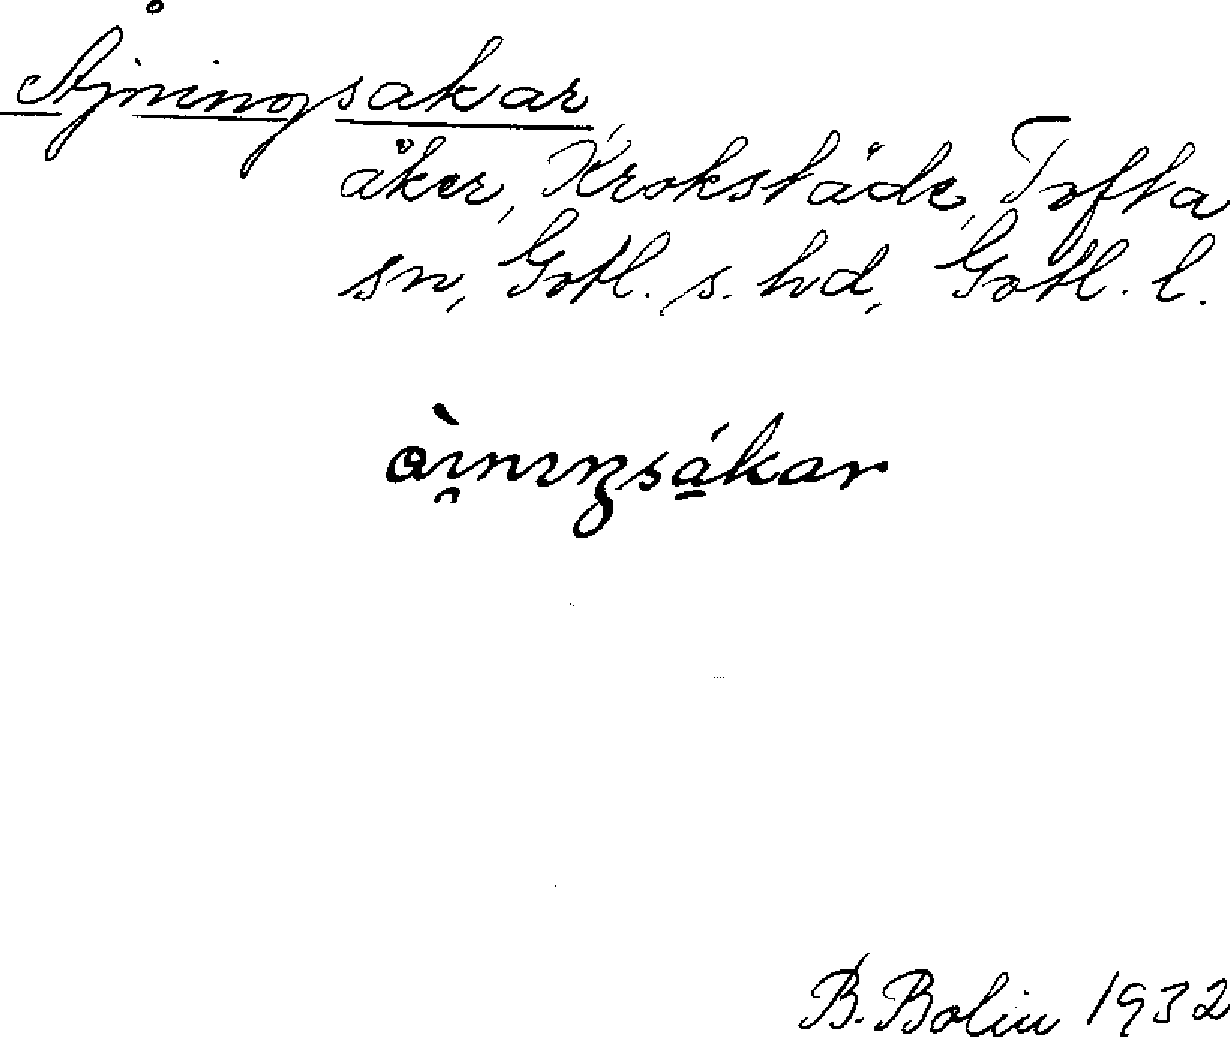 Åjningsakar
åker, Krokstäde, Tofta
sn, Gotl. s. hd, Gotl. l.
B. Bolin 1932